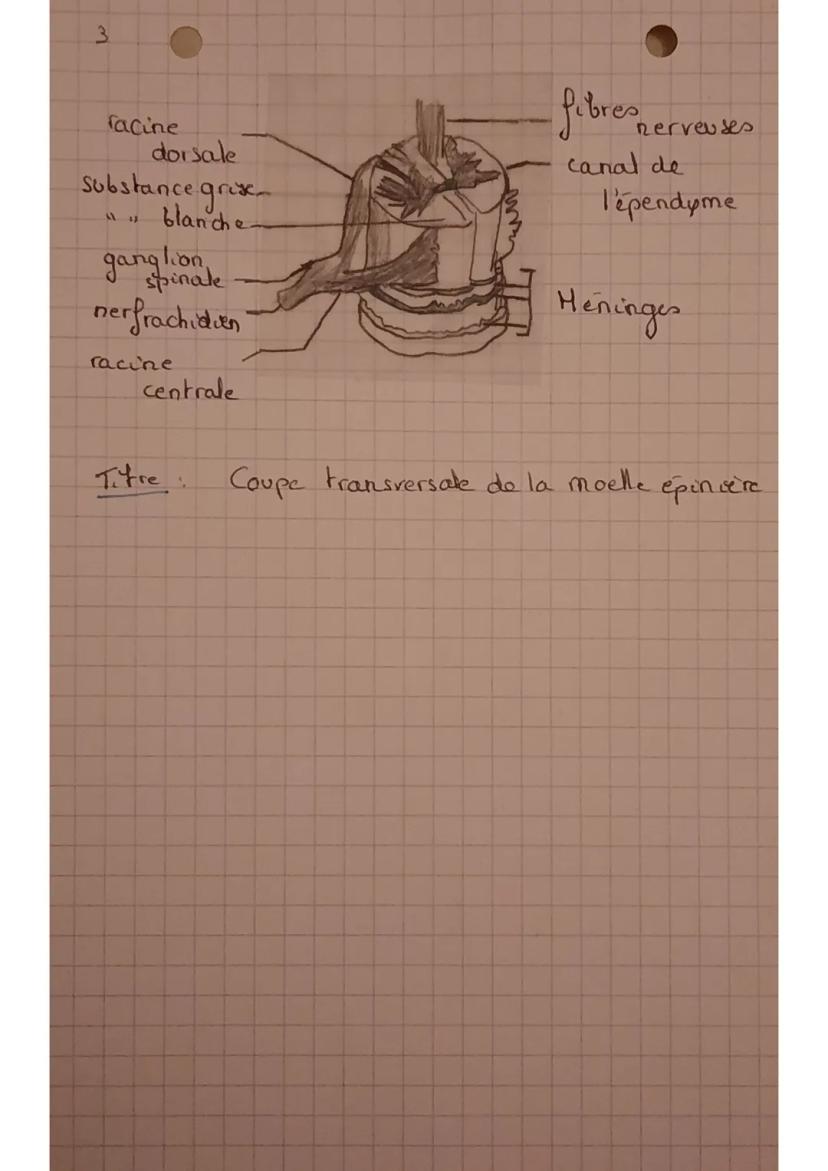 3
racine
dorsale
substance grise
" " blanche
ganglion
spinale
nerf rachidien
racine
centrale
fibres
nerveuses
canal de
l'épendyme
Méninges
Titre : Coupe transversale de la moelle épinière